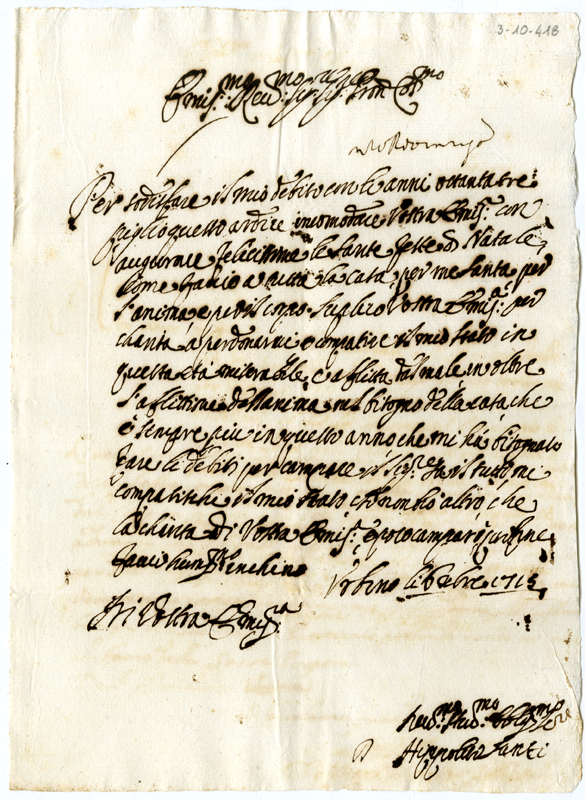 3-10-418
Emis.mo Reu.mo Sig.r Sig.r Pron Col.mo
Per sodisfare il mio debito con le anni ottanta tre
piglio questo ardire incomodare Vostra Emis.a con
augurarle felicissime le sante feste di Natale,
come facio a tutta la casa, per me santa per
l'anima e per il corpo. suplico Vostra Emis.a per
charità a perdonarmi e compatire il mio stato in
questa età miserabile, e aflitta dal male, in oltre
l'aflittione dell'anima nel bisogno della casa che
è sempre piu in questo anno che mi hà bisognato
fare le debiti per campare
compatische il mio stato che non ho altro, che
la charità di Vostra Emis.a e poco camparò, per fine
facio hum inchino
Vrbino li 6 xbre 1713
Di Vostra Emis.a
Hum.mo Oblig.mo Ser.re
Hippolito Santi